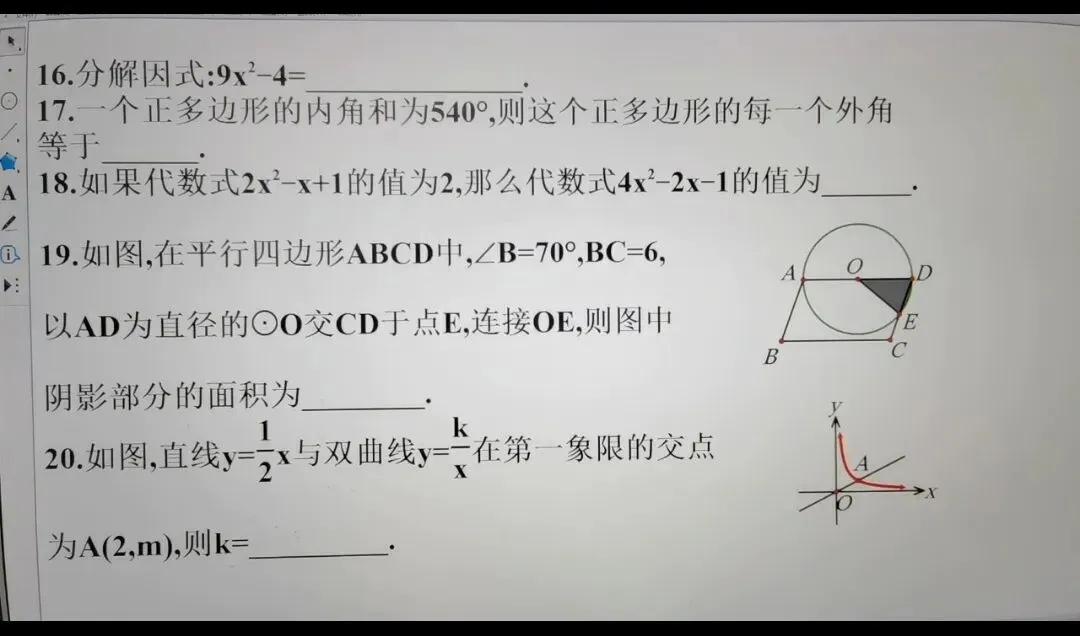 16.分解因式:9x²-4=__________.
17.一个正多边形的内角和为540°,则这个正多边形的每一个外角
等于______.
18.如果代数式2x²-x+1的值为2,那么代数式4x²-2x-1的值为______.
19.如图,在平行四边形ABCD中,∠B=70°,BC=6,
以AD为直径的⊙O交CD于点E,连接OE,则图中
阴影部分的面积为________.
A O D
E
B C
20.如图,直线y=1/2x与双曲线y=k/x在第一象限的交点
为A(2,m),则k=_________.
y
A
x
O
A